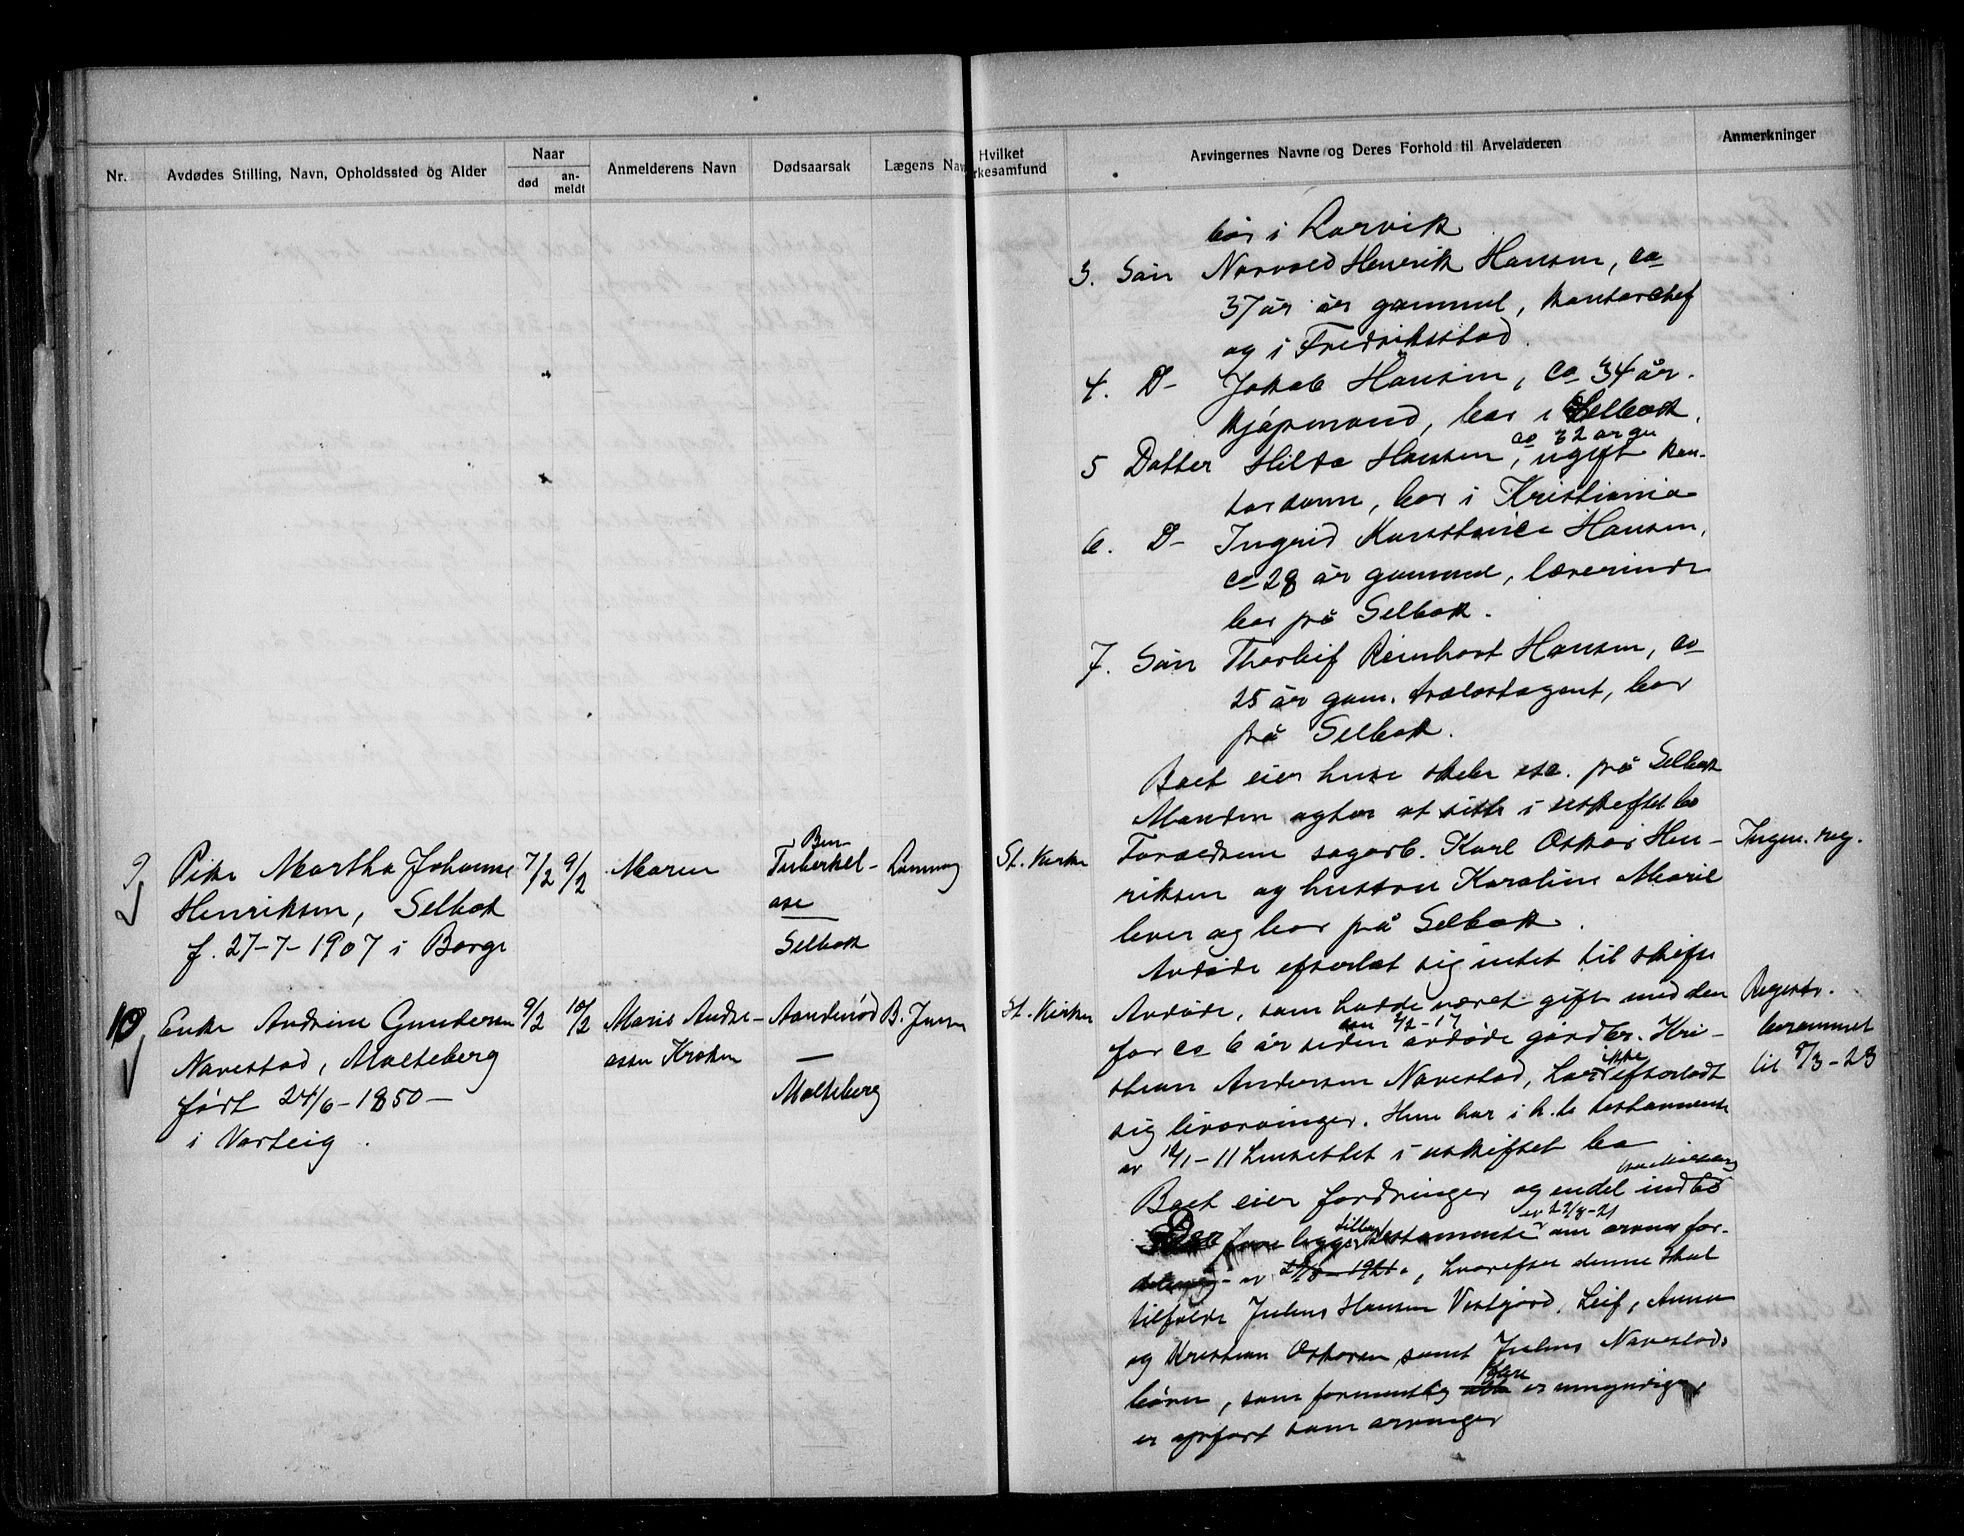 Nr.
Avdødes Stilling, Navn, Opholdssted og Alder
Naar
død
an-
meldt
Anmelderens Navn
Dødsaarsak
Lægens Nav
Hvilket
rkesamfund
Arvingernes Navne og Deres Forhold til Arveladeren
Anmerkninger
bor i Larvik
3. Søn Norvald Henrik Hansen, ca
37 år år gammel, kontorchef
og i Fredriksstad.
4. D- Jakob Hansen, ca 34 år.
kjøpmand, bor i Selbak.
ca 32 år gl
5 Datter Hilda Hansen, ugift kon-
tordame, bor i Kristiania
6. D- Ingrid Konstance Hansen,
ca 28 år gammel, lærerinde
bor på Selbak.
7. Søn Thorleif Reinhart Hansen, ca
25 år gam. trælastagent, bor
på Selbak.
Boet eier huse etc. på Selbak
Manden agter at sitte i uskiftet bo
9 Pike Martha Johanne
Henriksen, Selbak
f. 27-7-1907 i Borge
7/2 9/2
Moren
Ben
Tuberkel-
ose
Selbak
St. Kirken
Forældrene sagarb. Karl Oskar Hen-
riksen og hustru Karoline Marie
lever og bor på Selbak.
Avdøde efterlot sig intet til skifte
Ingen. reg.
10 Enke Andrine Gundersen
Navestad, Molteberg
født 24/6-1850-
i Varteig.
9/2 10/2
Marie Andre-
assen
B. Jensen
Molteberg
St. Kirken
Avdøde, som hadde været gift med den
for ca 6 år siden avdøde gårdbr. Kri-
stian Andersen Navestad, har ikke efterladt
sig livsarvinger. Hun har i h. t. testamente
av 12/1-11 hensittet i uskiftet bo
Boet eier fordringer og endel indbo
testamente av 29/8-21 om arvens for-
deling, hvorefter denne skal
tilfalde Julius Hansen Vestgård, Leif, Anna
og Kristian Oskar samt Julius Navestads
børn, som formentlig er umyndige,
er opført som arvinger
Registr.
berammet
til 8/3-23